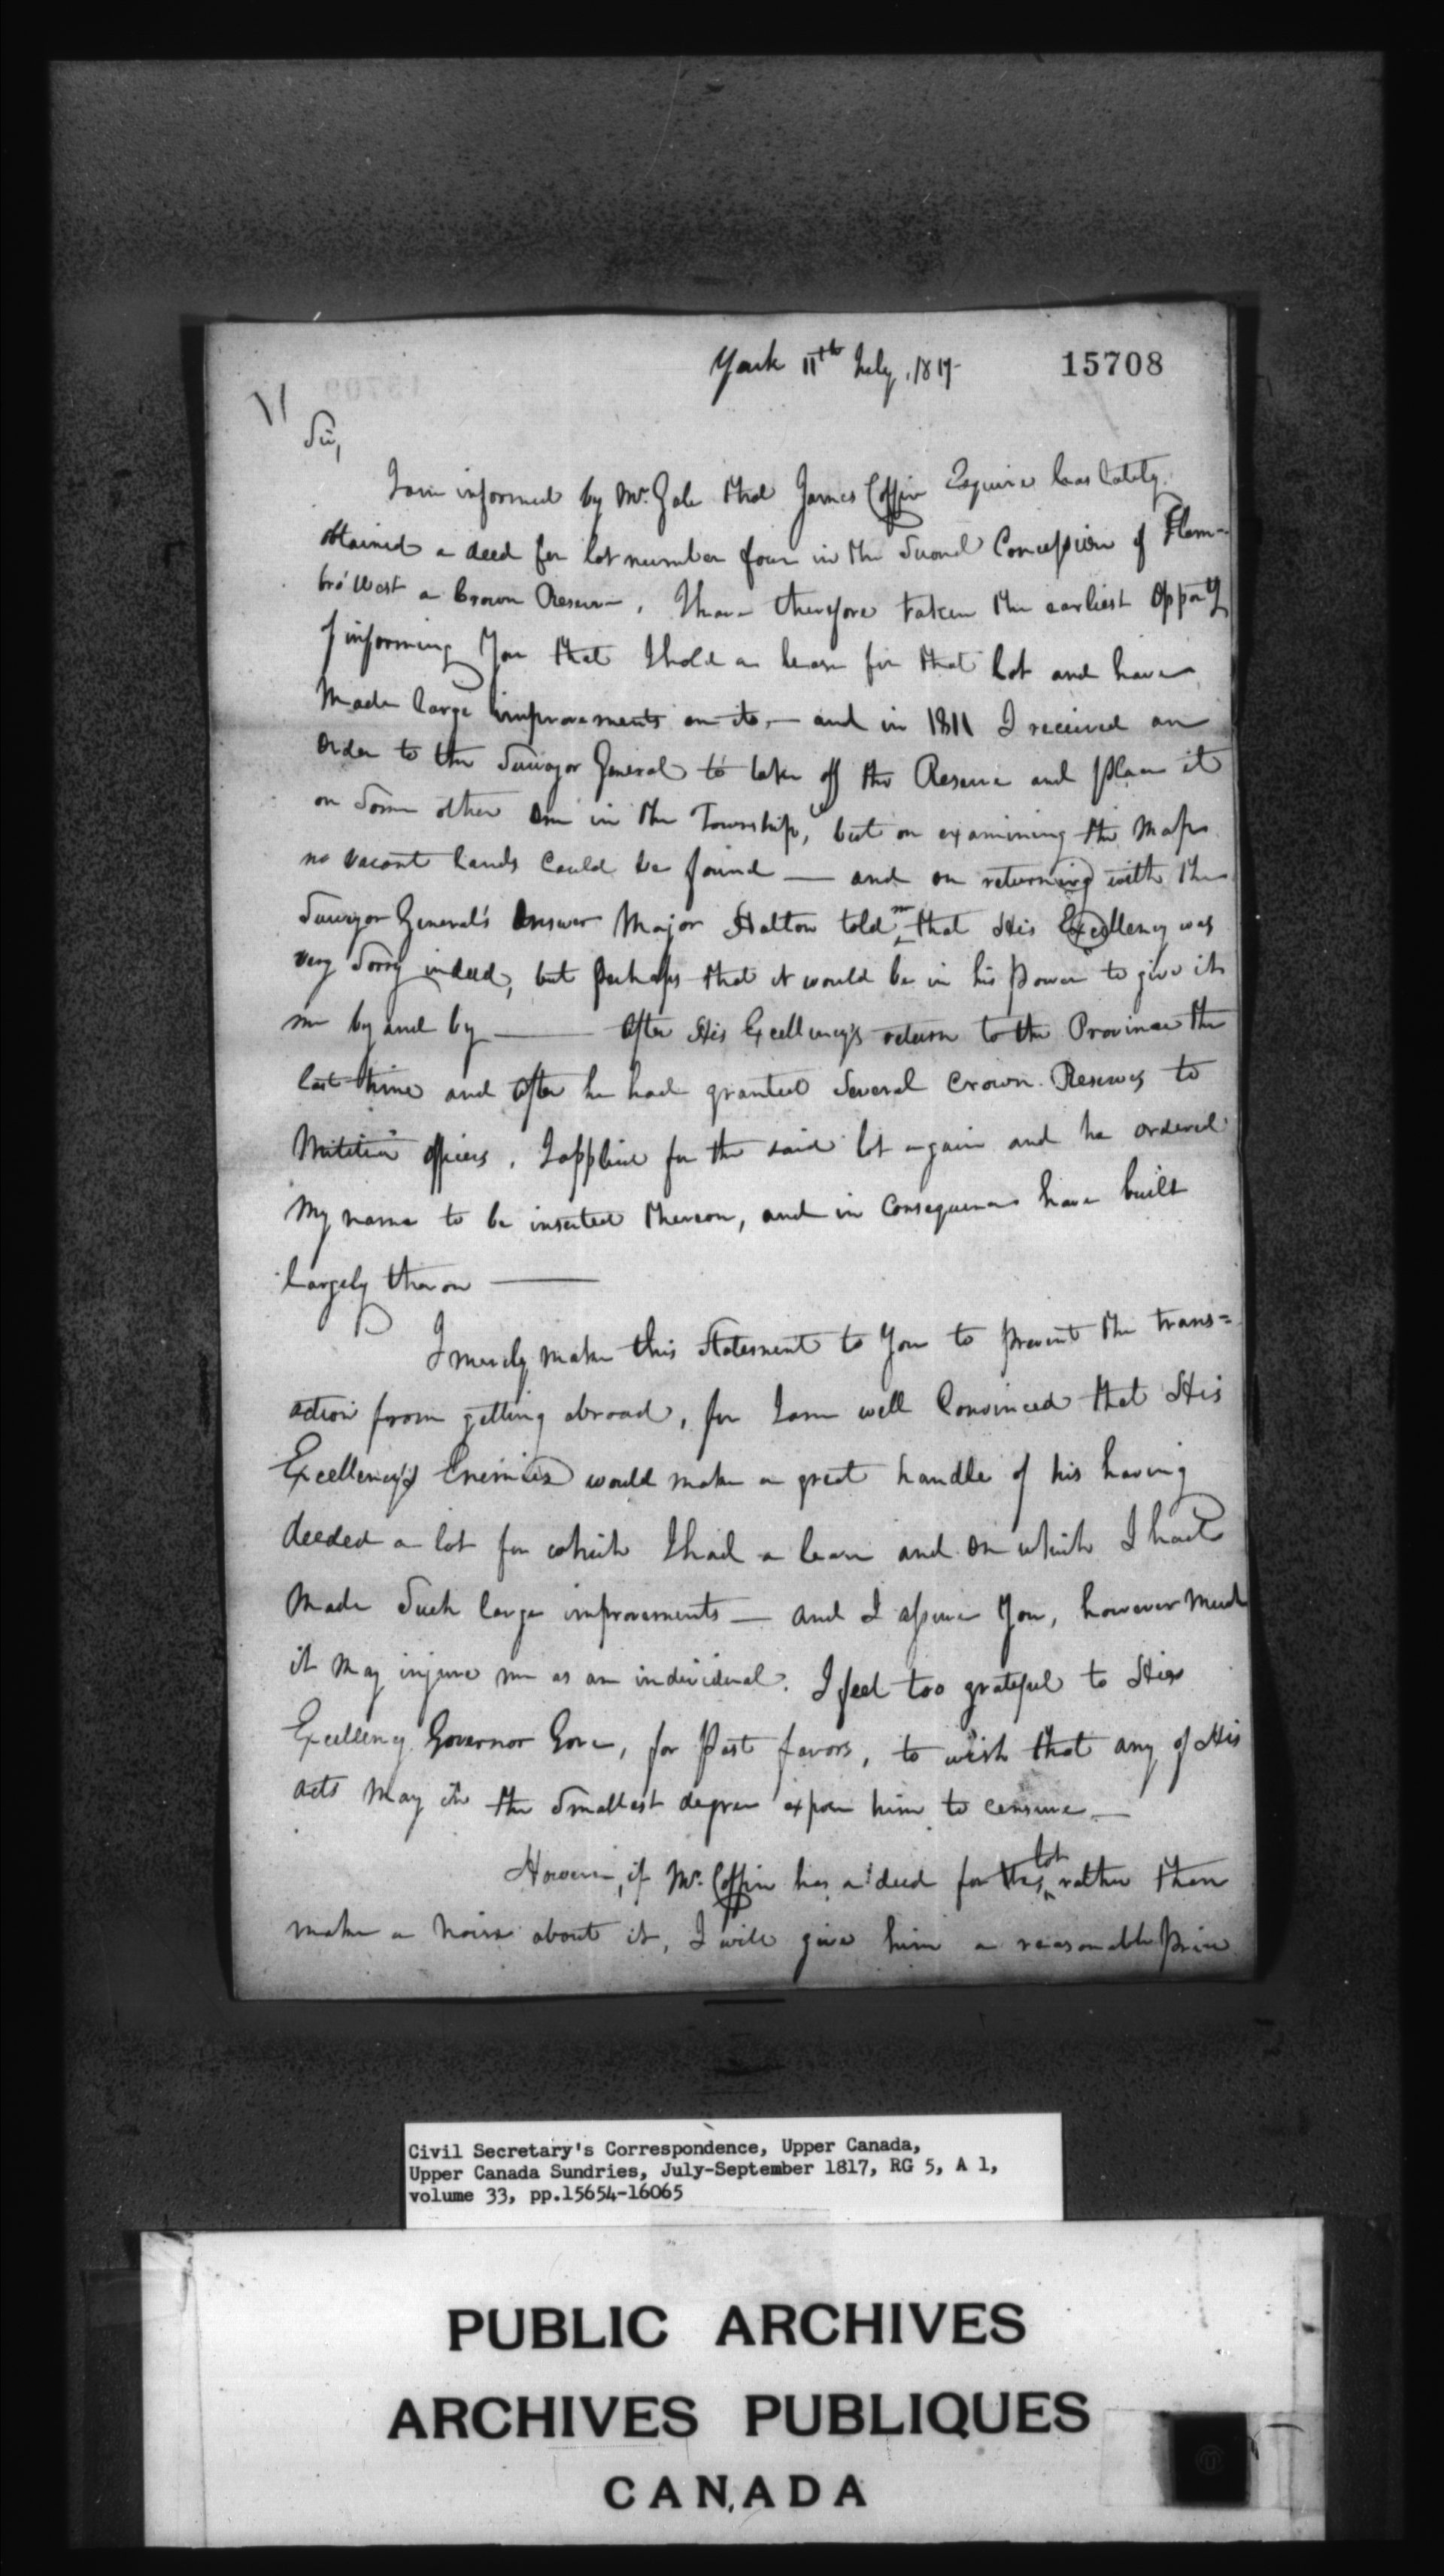 York 11th July, 1817-
15708
Sir,
I am informed by Mr. Gale that James Coffin Esquire has lately
obtained a deed for lot number four in the Second Concession of Flam-
bro' West a Crown Reserve, I have therefore taken the earliest Opporty
of informing You that I hold a lease for that lot and have
Made large improvements on it, — and in 1811 I received an
Order to the Surveyor General to take off the Reserve and place it
on Some other One in the Township, but on examining the Map
no vacant lands Could be found — and on returning with the
Surveyor General's Answer Major Halton told me that His Excellency was
very Sorry indeed, but perhaps that it would be in his power to give it
me by and by —— After His Excellency's return to the Province the
last time and After he had granted Several Crown Reserves to
Militia Officers, I applied for the said lot again and he ordered
My name to be inserted thereon, and in Consequence have built
largely thereon ——
I merely make this Statement to You to prevent the trans=
action from getting abroad, for I am well Convinced that His
Excellency's Enemies would make a great handle of his having
deeded a lot for which I had a lease and on which I had
Made Such large improvements — and I assure You, however Much
it May injure me as an individual. I feel too grateful to His
Excellency Governor Gore, for Past favors, to wish that any of His
acts May in the Smallest degree expose him to censure —
However, if Mr. Coffin has a deed for this lot rather than
make a noise about it, I will give him a reasonable Price
Civil Secretary's Correspondence, Upper Canada,
Upper Canada Sundries, July-September 1817, RG 5, A 1,
volume 33, pp.15654-16065
PUBLIC ARCHIVES
ARCHIVES PUBLIQUES
CANADA